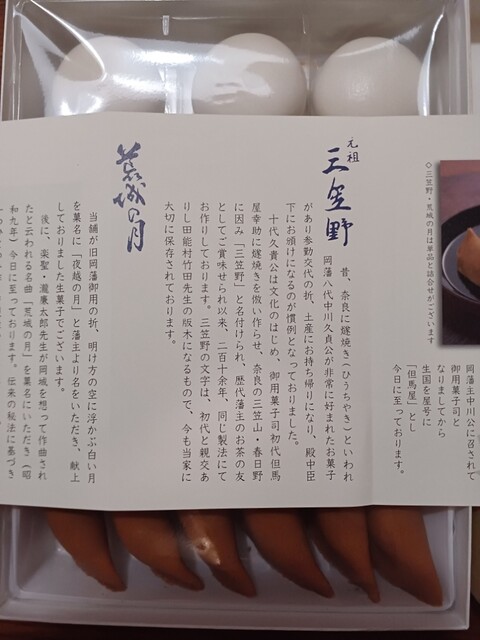 ◇三笠野・荒城の月は単品と詰合せがございます
岡藩主中川公に召されて
御用菓子司と
なりましてから
生国を屋号に
「但馬屋」とし
今日に至っております。
元祖
三笠野
昔、奈良に燧焼き(ひうちやき)といわれ
岡藩八代中川久貞公が非常に好まれたお菓子
があり参勤交代の折、土産にお持ち帰りになり、殿中臣
下にお頒けになるのが慣例となっておりました。
十代久貴公は文化のはじめ、御用菓子司初代但馬
屋幸助に燧焼きを倣い作らせ、奈良の三笠山・春日野
に因み「三笠野」と名付けられ、歴代藩主のお茶の友
としてご賞味せられ以来、二百十余年、同じ製法にて
お作りしております。三笠野の文字は、初代と親交あ
りし田能村竹田先生の版木になるもので、今も当家に
大切に保存されております。
荒城の月
当舗が旧岡藩御用の折、明け方の空に浮かぶ白い月
を菓名に「夜越の月」と藩主より名をいただき、献上
しておりました生菓子でございます。
後に、楽聖・瀧廉太郎先生が岡城を想って作曲され
たと云われる名曲「荒城の月」を菓名にいただき(昭
和九年)今日に至っております。伝来の秘法に基づき